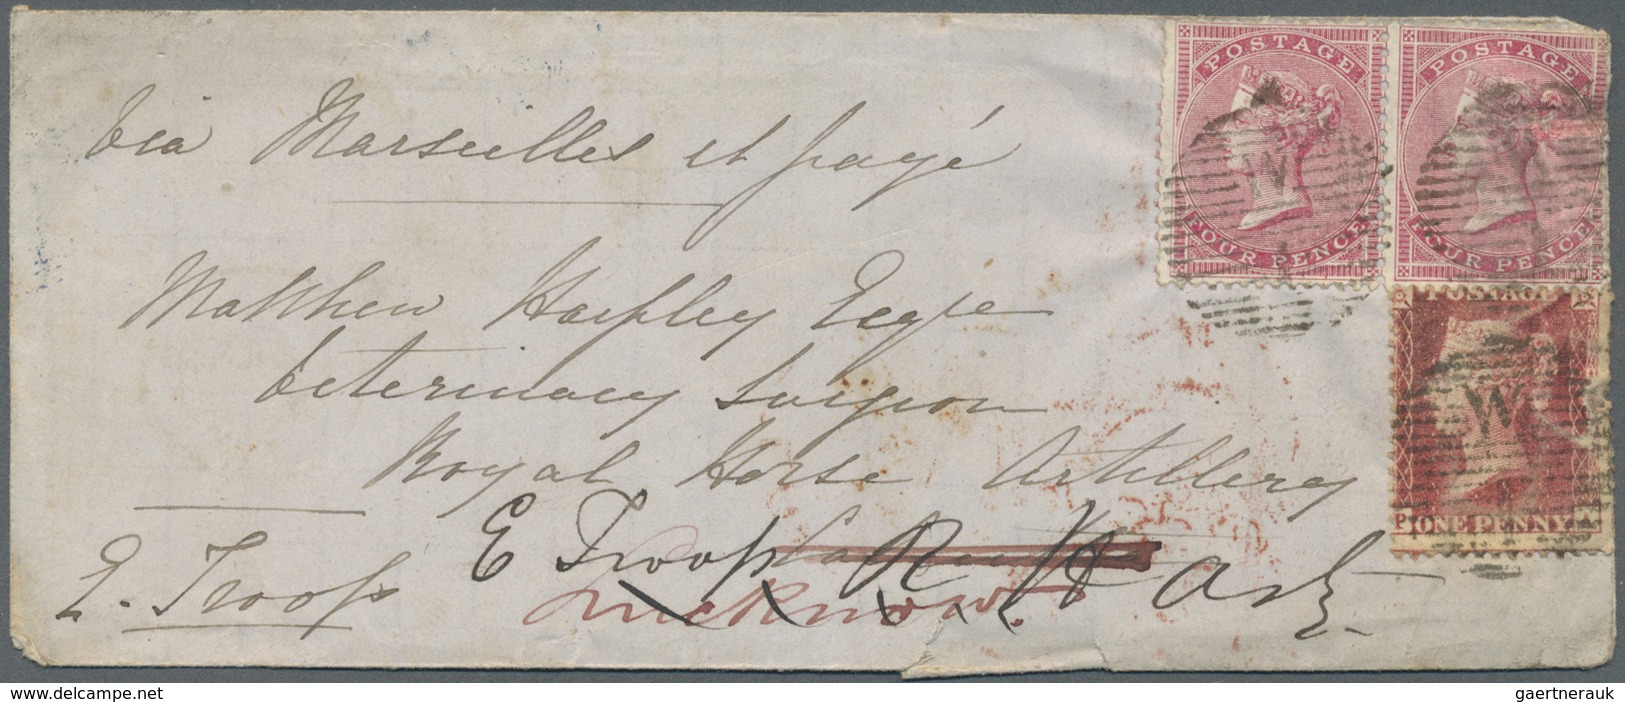 via Marseilles et payé
Matthew Harpley Esqre
Veterinary Surgeon
Royal Horse Artillery
E. Troop
E Troop R H Arty
Lucknow.
POSTAGE
FOUR PENCE
POSTAGE
FOUR PENCE
POSTAGE
ONE PENNY
W
W
www.delcampe.net
gaertnerauk